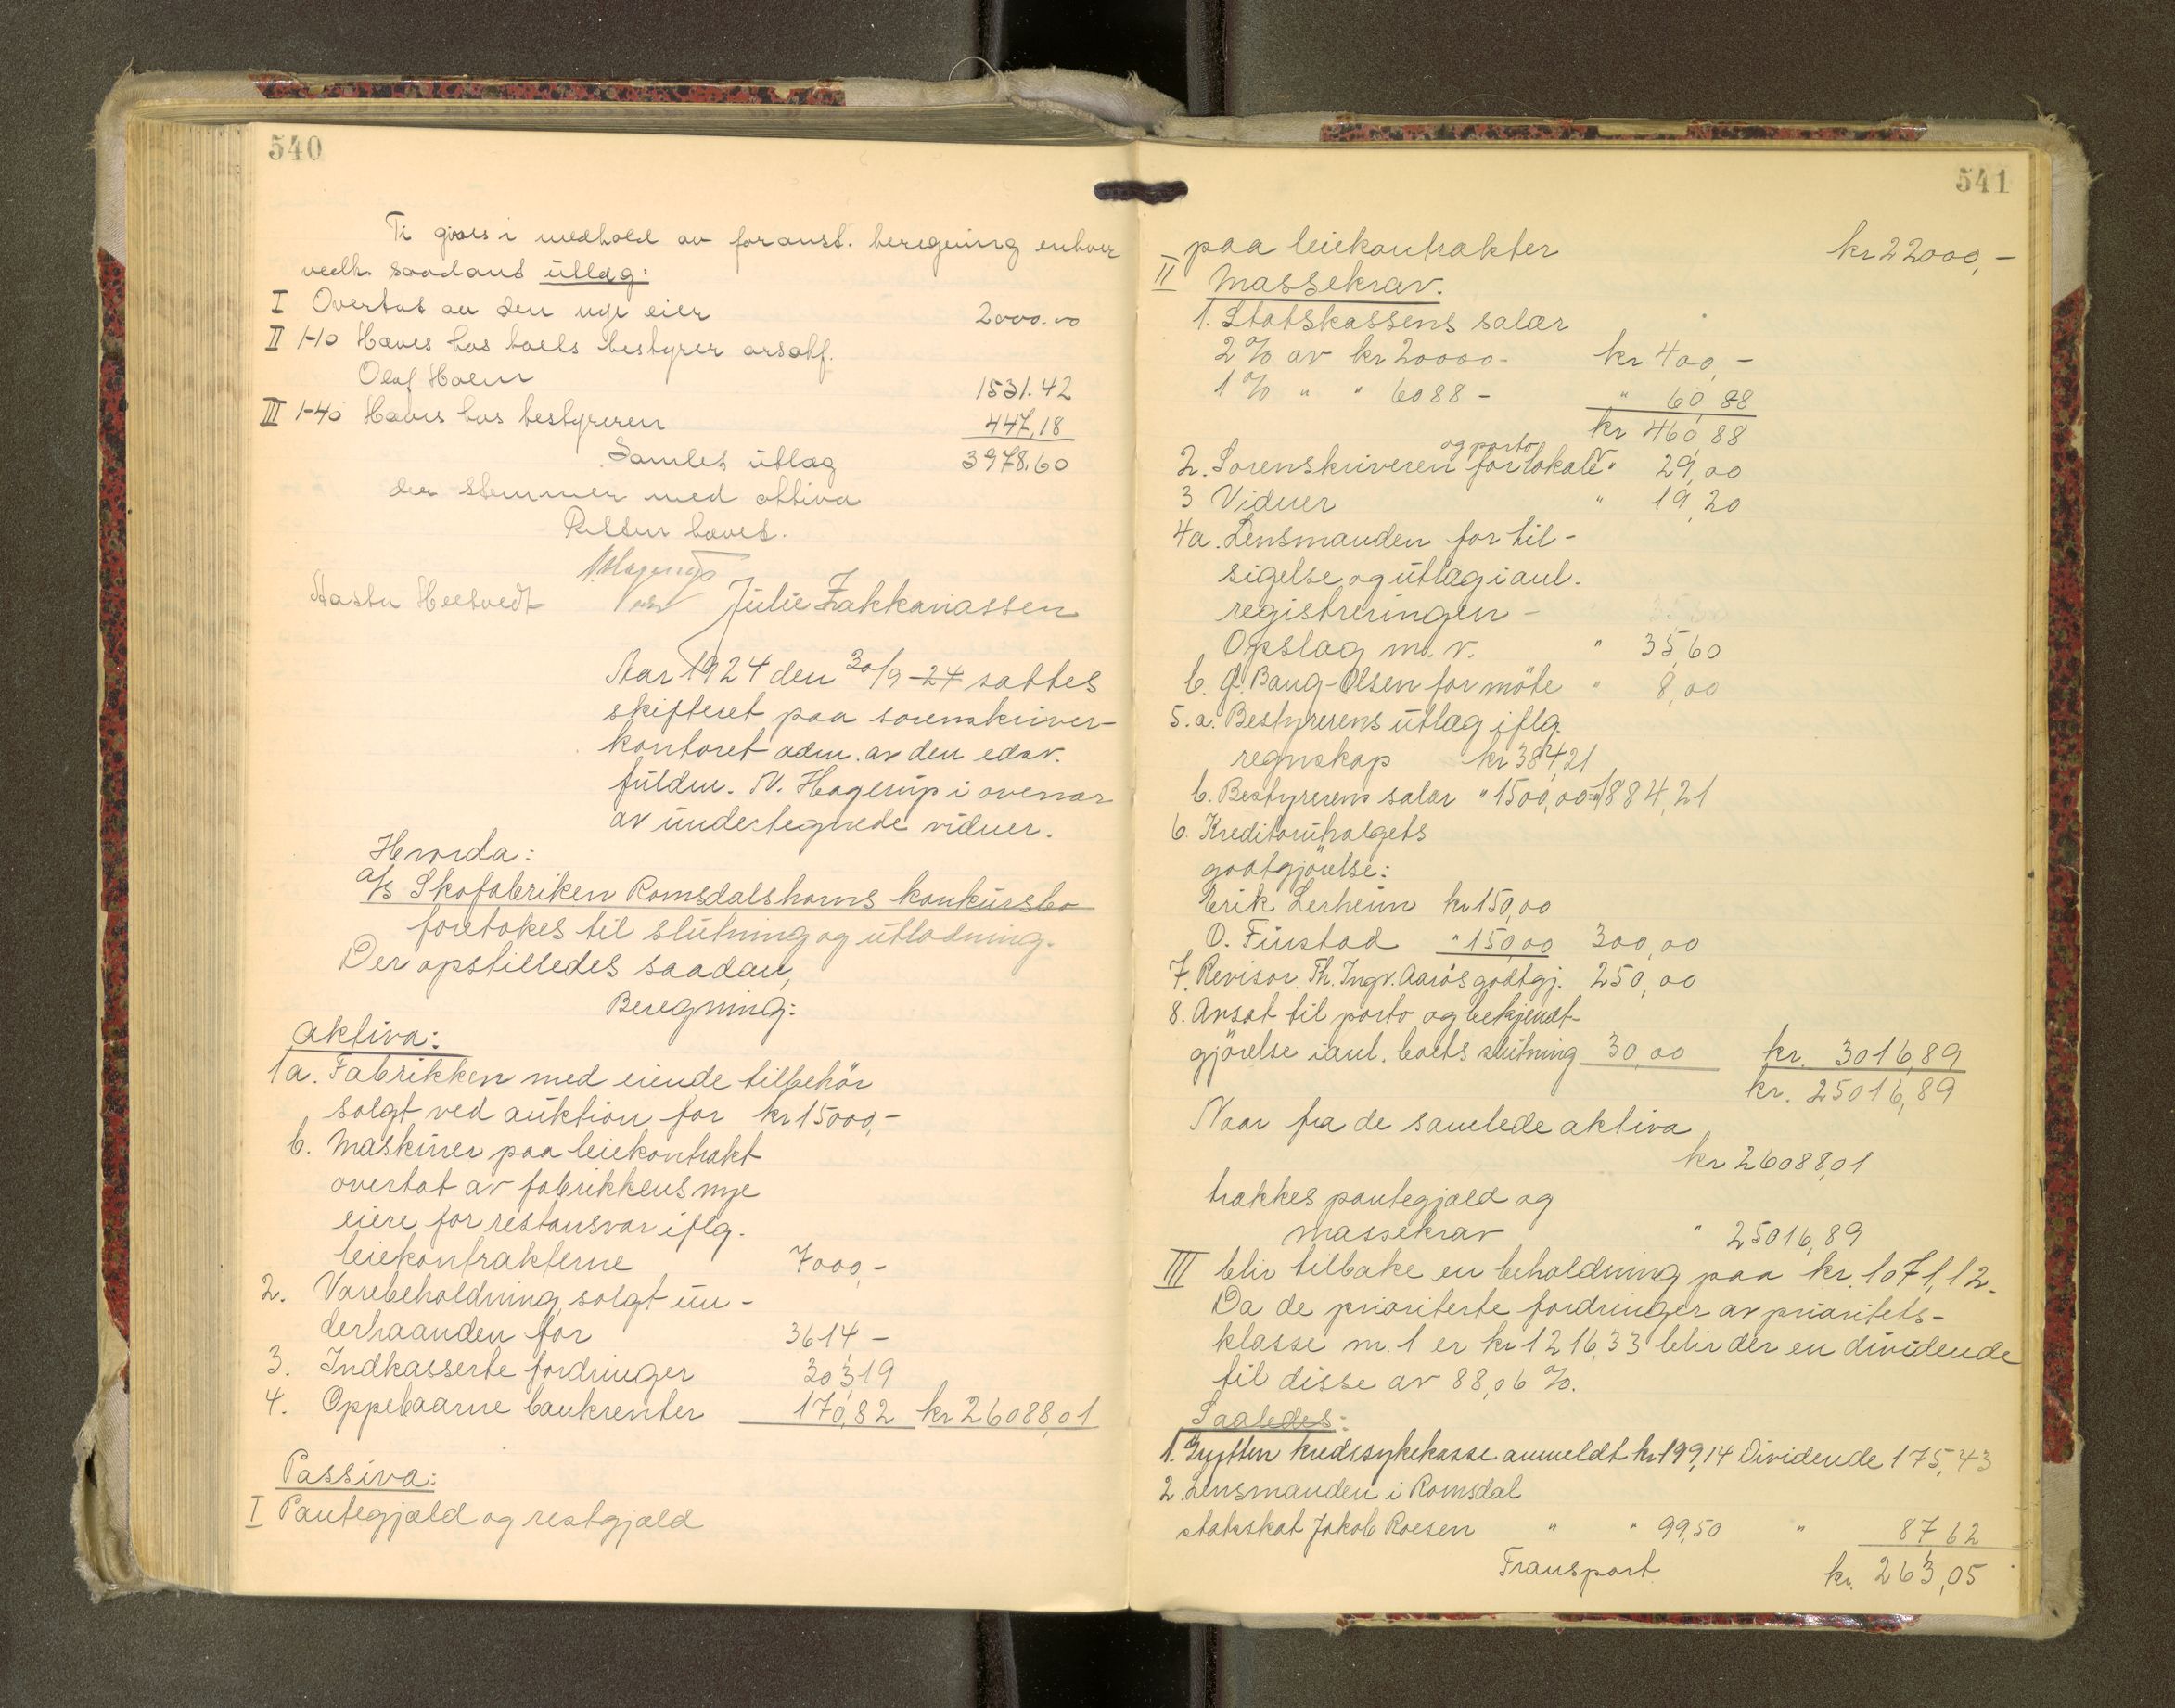 540
Ti gives i medhold av foranst. beregning enhver
vedk. saadant utlæg:
I Overtat av den nye eier 2000.00
II 1-10 Haves hos boets bestyrer orsakf.
Olaf Holm 1531.42
III 1-40 Haves hos bestyreren 447,18
Samlet utlæg 3978,60
der stemmer med aktiva
Retten hævet.
N. Hagerup
Aasta Heetvedt Julie Zakkariassen
Aar 1924 den 30/9 24 sattes
skifteret paa sorenskriver-
kontoret adm. av den edsv.
fuldm. N. Hagerup i overvær
av undertegnede vidner.
Hvorda:
a/s Skofabriken Romsdalshorns konkursbo
foretokes til slutning og utlodning.
Der opstilledes saadan,
Beregning:
Aktiva:
1a. Fabrikken med eiende tilbehör
solgt ved auktion for kr 15000,-
b. Maskiner paa leiekontrakt
overtat av fabrikkens nye
eiere for restansvar iflg.
leiekontrakterne 7000,-
2. Varebeholdning solgt un-
derhaanden for 3614,-
3. Indkasserte fordringer 303,19
4. Oppebaarne bankrenter 170,82 kr 26088,01
Passiva:
I Pantegjæld og restgjæld
541
paa leiekontrakter kr 22000,-
II Massekrav.
1. Statskassens salær
2 % av kr 20000- kr 400,-
1 % " " 6088 - " 60,88
kr 460,88
2. Sorenskriveren og porto for lokale " 29,00
3 Vidner " 19,20
4a. Lensmanden for til-
sigelse og utlæg i anl.
registreringen -
Opslag m.v. " 35,60
b. G. Baug-Olsen for möte " 8,00
5. a. Bestyrerens utlæg iflg.
regnskap kr 384,21
b. Bestyrerens salær " 1500,00 " 1884,21
6. Kreditorutvalgets
godtgjörelse:
Erik Lerheim kr 150,00
O. Finstad " 150,00 300,00
7. Revisor Th. Ingv. Aarös godtgj. 250,00
8. Avsat til porto og bekjendt-
gjörelse i anl. boets slutning 30,00 kr. 3016,89
kr. 25016,89
Naar fra de samlede aktiva
kr 26088,01
trækkes pantegjæld og
massekrav " 25016,89
III blir tilbake en beholdning paa kr. 1071,12.
Da de prioriterte fordringer av prioritets-
klasse nr. 1 er kr 1216,33 blir der en dividende
til disse av 88,06 %.
Saaledes:
1. Grytten kredssykekasse anmeldt kr 199,14 Dividende 175,43
2. Lensmanden i Romsdal
statsskat Jakob Roesen " " 99,50 " 87,62
Transport kr. 263,05